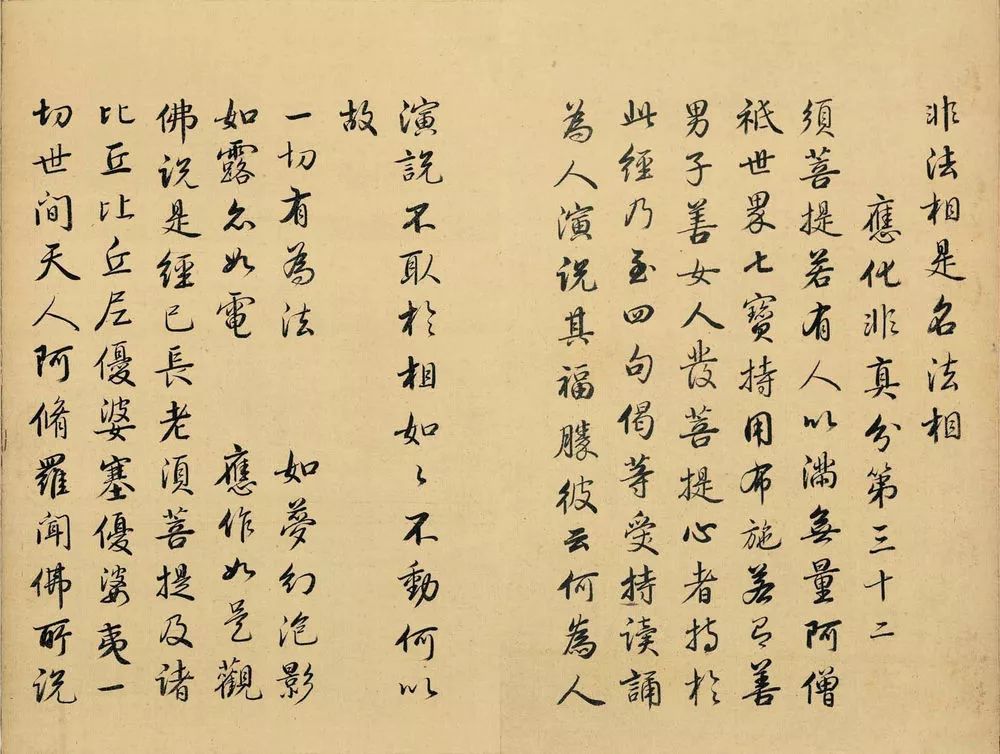 非法相是名法相
應化非真分第三十二
須菩提若有人以滿無量阿僧
祇世界七寶持用布施若有善
男子善女人發菩提心者持於
此經乃至四句偈等受持读誦
為人演说其福勝彼云何為人
演説不取於相如〻不動何以
故
一切有為法 如夢幻泡影
如露亦如電 應作如是觀
佛说是經已長老須菩提及諸
比丘比丘尼優婆塞優婆夷一
切世间天人阿脩羅聞佛所说